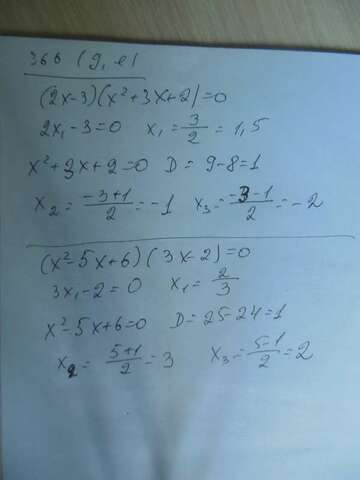 366 (g, e)
(2x-3)(x²+3x+2)=0
2x₁-3=0 x₁=3/2=1,5
x²+3x+2=0 D=9-8=1
x₂=(-3+1)/2=-1 x₃=(-3-1)/2=-2
(x²-5x+6)(3x-2)=0
3x₁-2=0 x₁=2/3
x²-5x+6=0 D=25-24=1
x₂=(5+1)/2=3 x₃=(5-1)/2=2